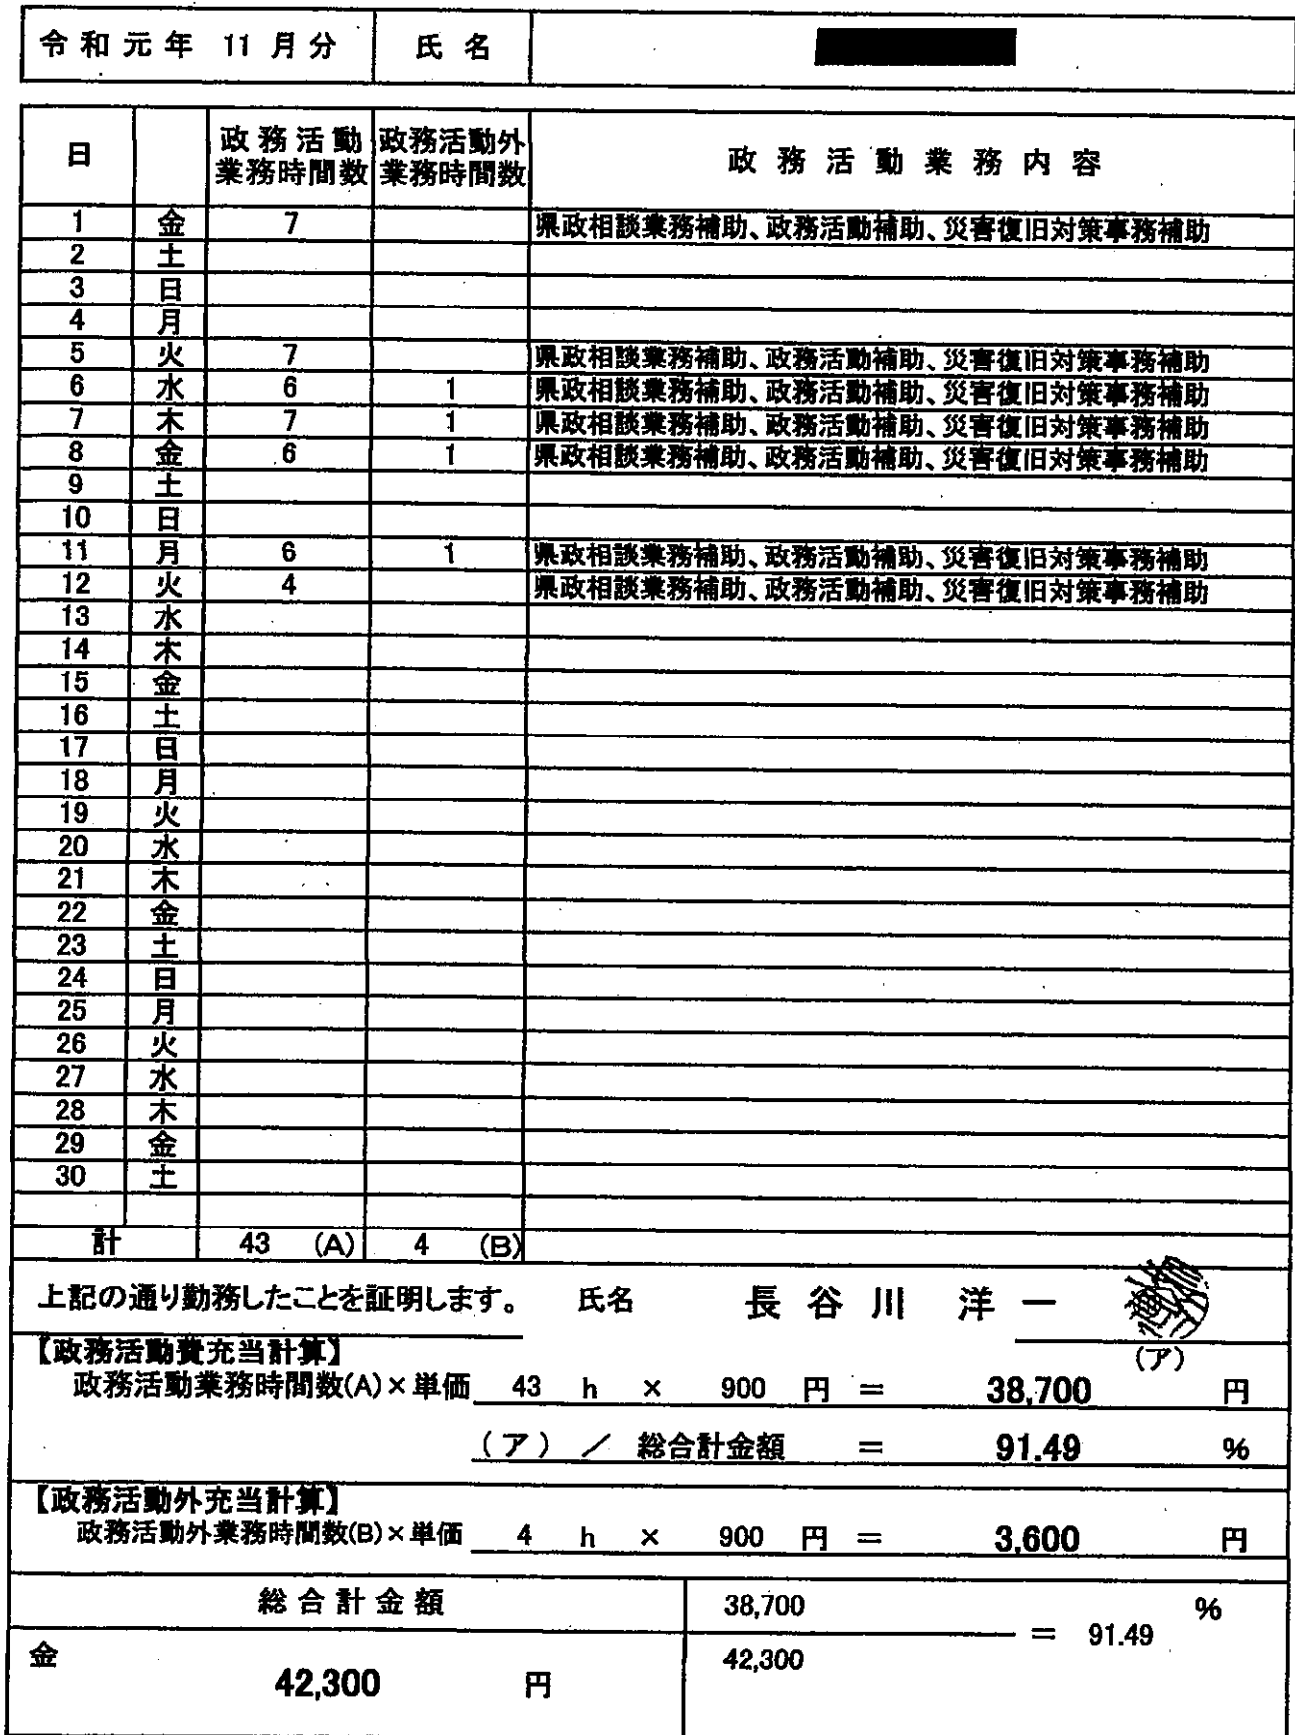 令和元年 11月分 氏名
日 政務活動業務時間数 政務活動外業務時間数 政務活動業務内容
1 金 7 県政相談業務補助、政務活動補助、災害復旧対策事務補助
2 土
3 日
4 月
5 火 7 県政相談業務補助、政務活動補助、災害復旧対策事務補助
6 水 6 1 県政相談業務補助、政務活動補助、災害復旧対策事務補助
7 木 7 1 県政相談業務補助、政務活動補助、災害復旧対策事務補助
8 金 6 1 県政相談業務補助、政務活動補助、災害復旧対策事務補助
9 土
10 日
11 月 6 1 県政相談業務補助、政務活動補助、災害復旧対策事務補助
12 火 4 県政相談業務補助、政務活動補助、災害復旧対策事務補助
13 水
14 木
15 金
16 土
17 日
18 月
19 火
20 水
21 木
22 金
23 土
24 日
25 月
26 火
27 水
28 木
29 金
30 土
計 43 (A) 4 (B)
上記の通り勤務したことを証明します。 氏名 長谷川 洋一
【政務活動費充当計算】 (ア)
政務活動業務時間数(A)×単価 43 h × 900 円 = 38,700 円
(ア) / 総合計金額 = 91.49 %
【政務活動外充当計算】
政務活動外業務時間数(B)×単価 4 h × 900 円 = 3,600 円
総合計金額 38,700 %
= 91.49
金 42,300 円 42,300